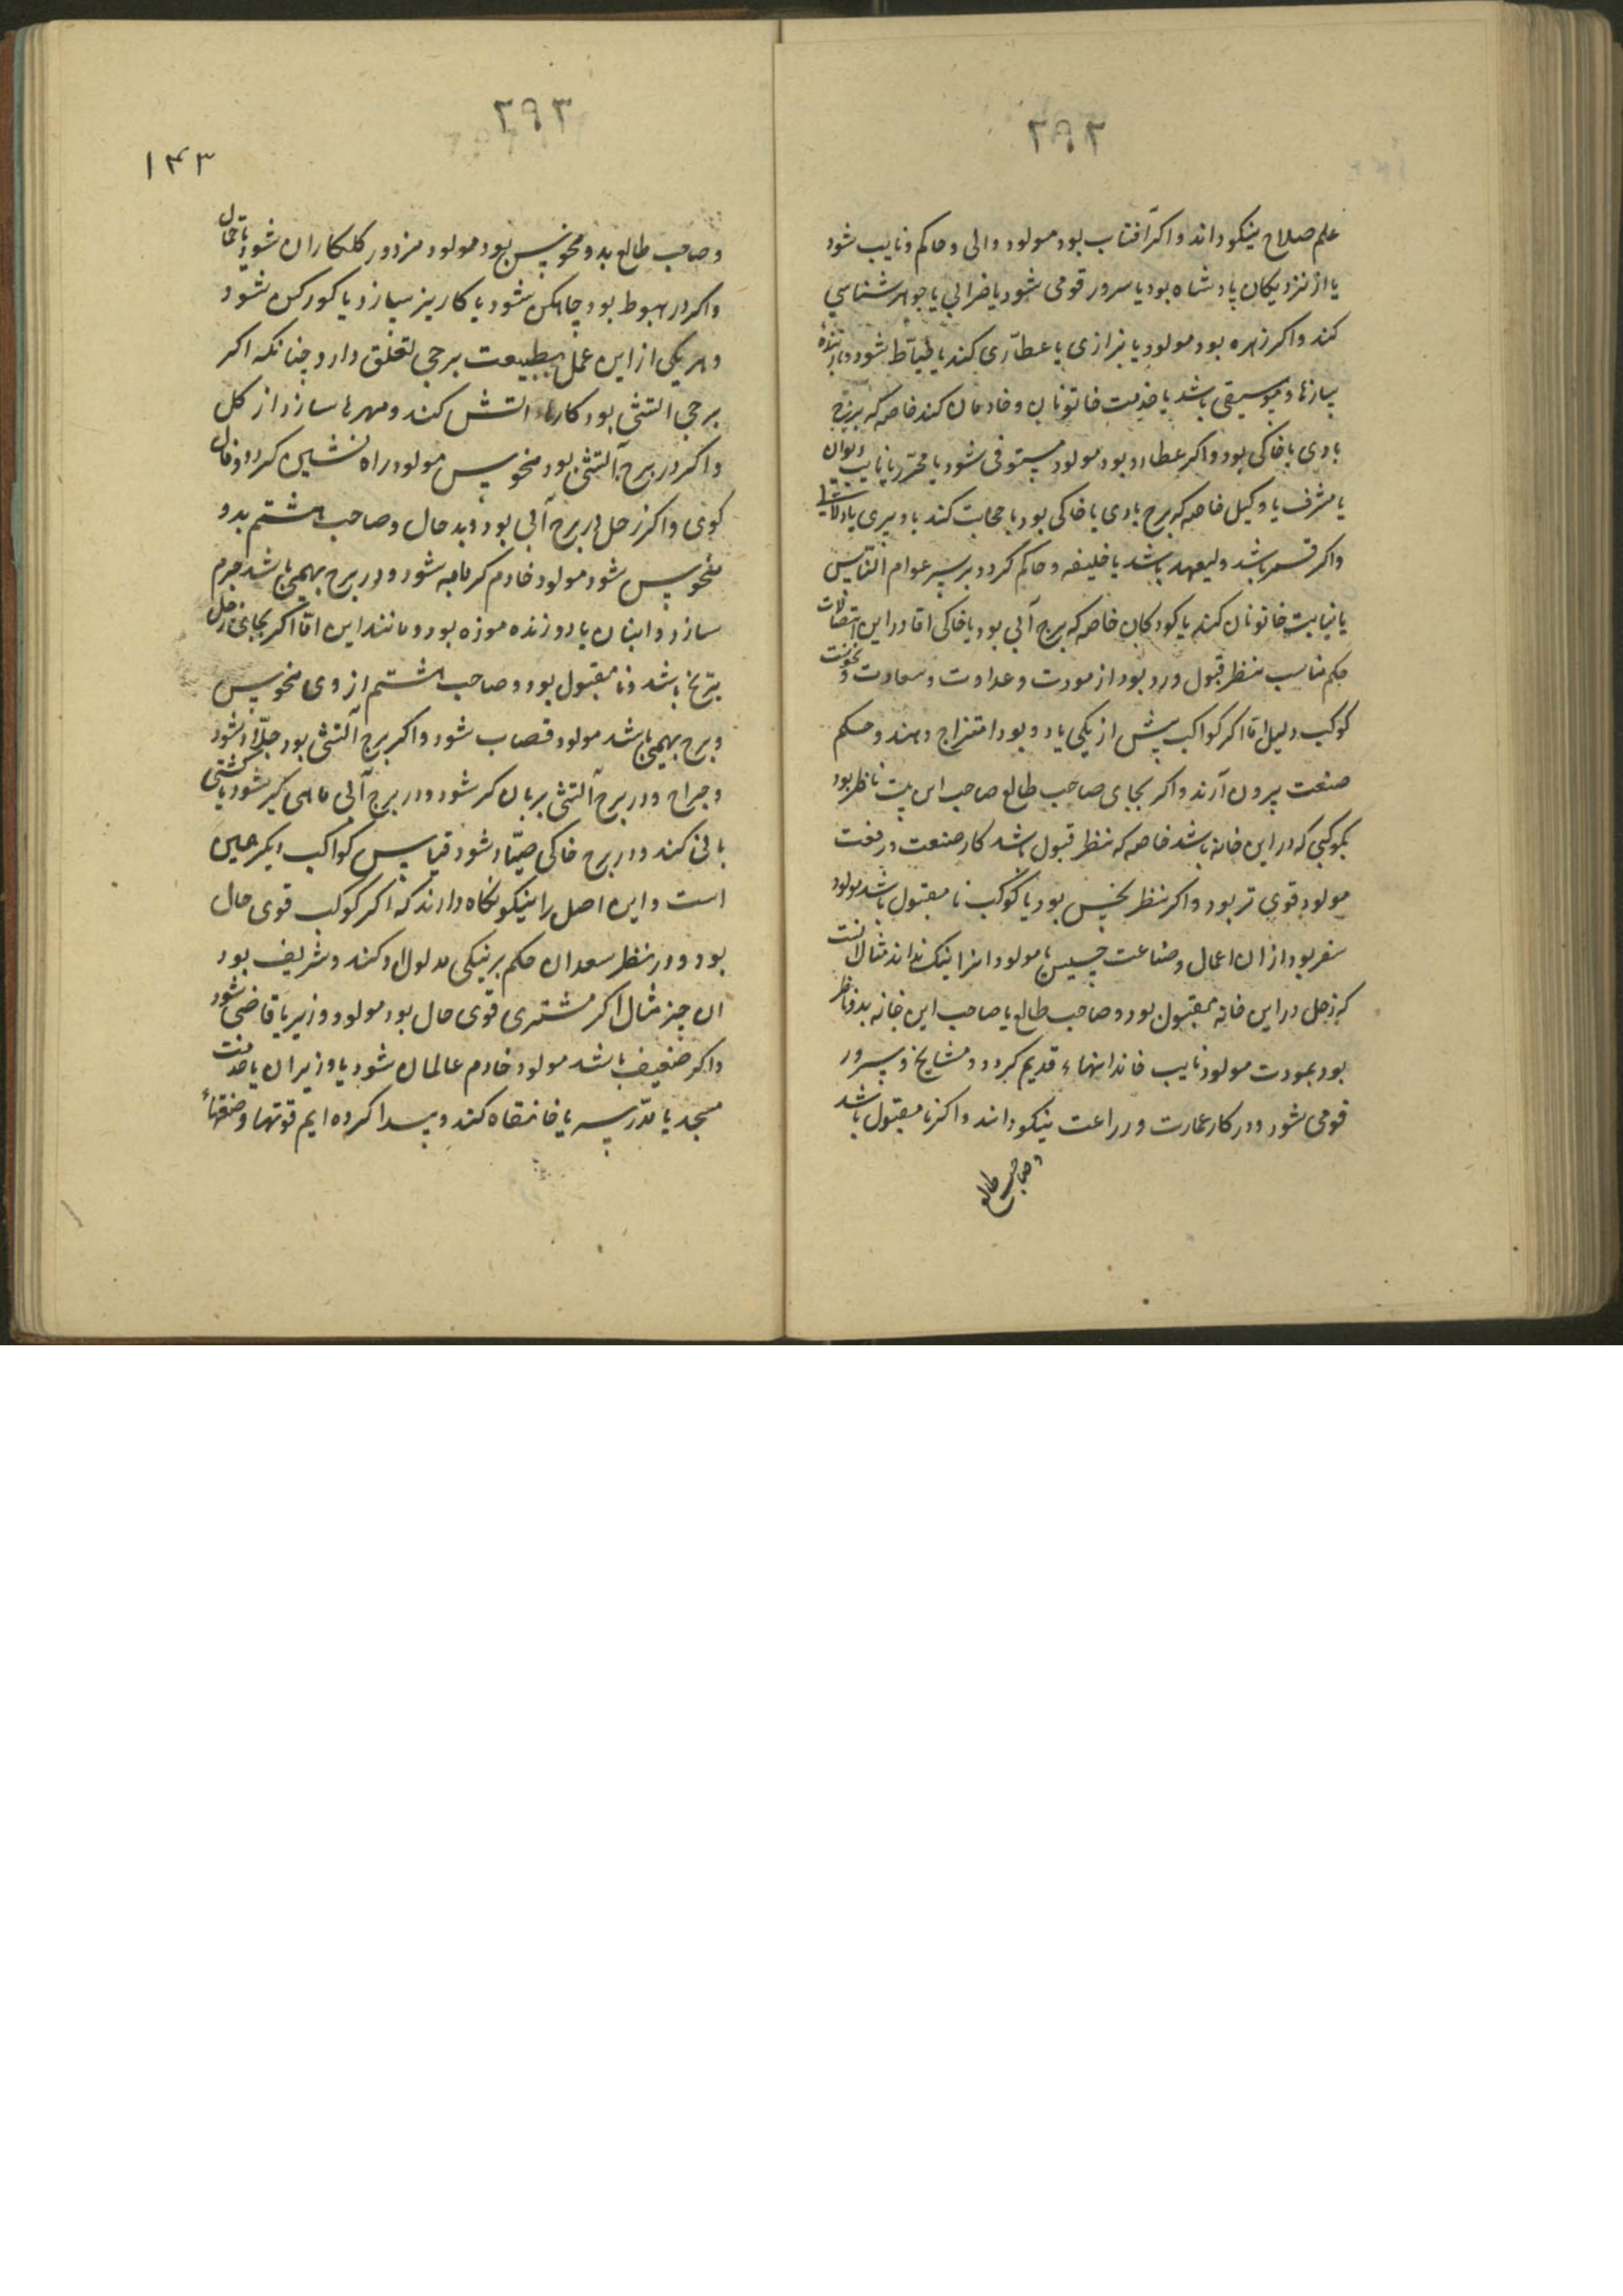 ۲۹۲
علم صلاح نیکو داند و اکر آفتاب بود مولود والی و حاکم و نایب شود
یا از نزدیکان پادشاه بود یا سرور قومی شود یا ضرابی یا جواهر شناسی
کند و اکر زهره بود مولود یا بزازی یا عطاری کند یا خیاط شود و دارنده
سازها و موسیقی باشد یا خدمت خاتونان و خادمان کند خاصه که برج
بادی یا خاکی بود و اکر عطارد بود مولود مستوفی شود یا محرر یا نایب دیوان
یا مشرف یا وکیل خاصه که برج بادی یا خاکی بود یا حجابت کند یا دبیری یا
و اکر قمر باشد ولیعهد باشد یا خلیفه و حاکم کردد بر سر عوام الناس
یا نیابت خاتونان کند یا کودکان خاصه که برج آبی بود یا خاکی اما در این اتصالات
حکم مناسب منظر قبول و رد بود از مودت و عداوت و سعادت و نحوست
کوکب دلیل اما اکر کواکب پیش از یکی یا دو بود امتزاج دهند و حکم
صنعت بیرون آرند و اکر بجای صاحب طالع صاحب این بیت ناظر بود
بکوکبی که در این خانه باشد خاصه که منظر قبول باشد کار صنعت و رفعت
مولود قوی تر بود و اکر منظر نحس بود یا کوکب نا مقبول باشد مولود
بود از ان اعمال و صناعت خسیس یا مولود انرا نیک نداند مثال انست
که زحل در این خانه مقبول بود و صاحب طالع یا صاحب این خانه بدو ناظر
بود بمودت مولود نایب خاندانهاء قدیم کردد و مشایخ و سرور
قومی شود و در کار عمارت و زراعت نیکو داند و اکر نا مقبول باشد
و صاحب طالع
۲۹۳
۱۴۳
و صاحب طالع بدو منحوس بود مولود مزدور کلکاران شود یا حمال
و اکر در هبوط بود چاه کن شود یا کاریز سازد یا کورکن شود
و هر یکی از این عمل بطبیعت برجی تعلق دارد چنانکه اکر
برجی آتشی بود کارهاء آتش کند و مهرها سازد از کل
و اکر در برج آتشی بود منحوس مولود راه نشین کردد و فال
کوی و اکر زحل در برج آبی بود و بد حال و صاحب هشتم بدو
منحوس شود مولود خادم کرمابه شود و در برج بهیمی باشد چرم
سازد و انبان یا دوزنده موزه بود و مانند این اما اکر بجای زحل
مریخ باشد و نا مقبول بود و صاحب هشتم از وی منحوس
و برج بهیمی باشد مولود قصاب شود و اکر برج آتشی بود جلاد شود
و جراح و در برج آتشی بریان کر شود و در برج آبی ماهی کیر شود یا کشتی
بانی کند و در برج خاکی صیاد شود قیاس کواکب دیکر همین
است و این اصل را نیکو نکاه دارند که اکر کوکب قوی حال
بود و در منظر سعدان حکم بر نیکی مدلول او کند و شریف بود
ان چیز مثال اکر مشتری قوی حال بود مولود وزیر یا قاضی شود
و اکر ضعیف باشد مولود خادم عالمان شود یا وزیران یا خدمت
مسجد یا مدرسه یا خانقاه کند و پیدا کرده ایم قوتها و ضعفهاء